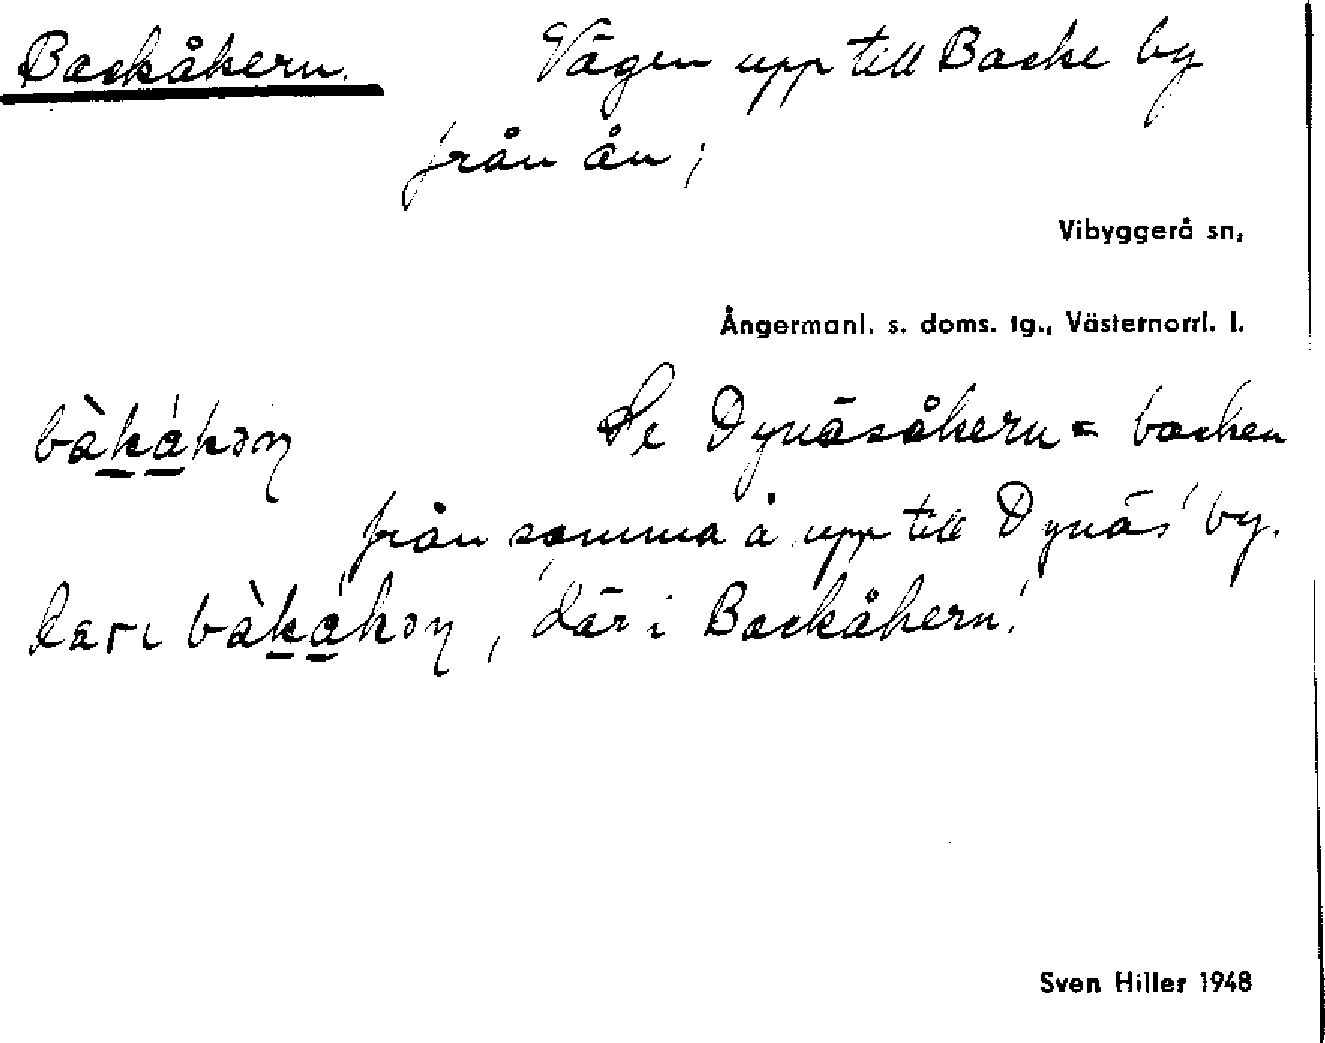 Backåkern. Vägen upp till Backe by
från ån;
Vibyggerå sn,
Ångermanl. s. doms. tg., Västernorrl. l.
Se Dynäsåkern = backen
från samma å upp till Dynäs' by.
'där i Backåkern'
Sven Hiller 1948